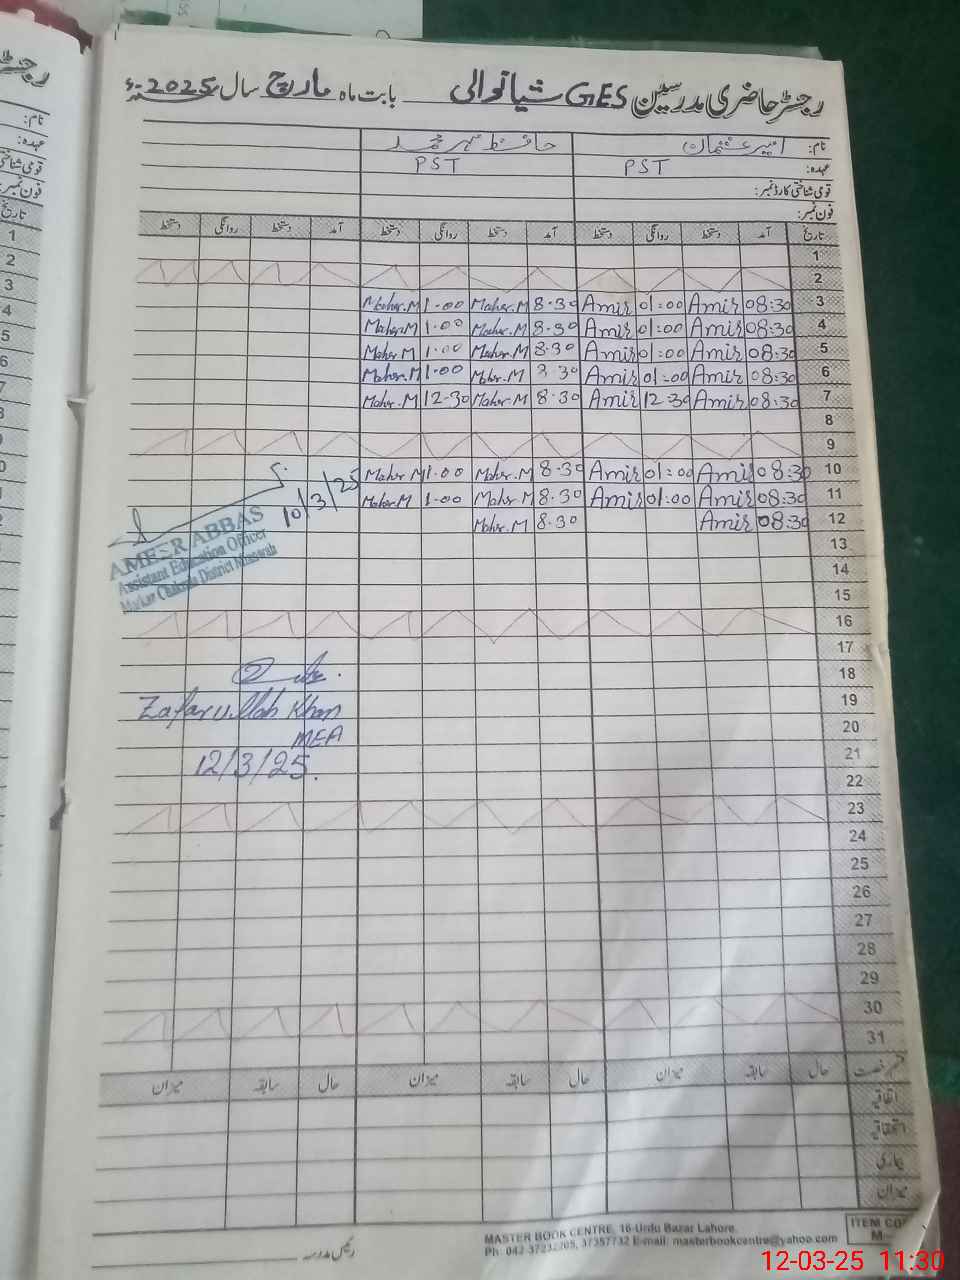 رجسٹر حاضری مدرسین GES شیانوالی بابت ماہ مارچ سال 2025ء
نام: امیر عثمان حافظ مہر محمد
عہدہ: PST PST
قومی شناختی کارڈ نمبر:
فون نمبر:
تاریخ آمد دستخط روانگی دستخط آمد دستخط روانگی دستخط آمد دستخط روانگی دستخط
1
2
3 08:30 Amir 01:00 Amir 8.30 Maher.M 1.00 Maher.M
4 08:30 Amir 01:00 Amir 8.30 Maher.M 1.00 Maher.M
5 08:30 Amir 01:00 Amir 8.30 Maher.M 1.00 Maher.M
6 08:30 Amir 01:00 Amir 8.30 Maher.M 1.00 Maher.M
7 08:30 Amir 12:30 Amir 8.30 Maher.M 12-30 Maher.M
8
9
10 08:30 Amir 01:00 Amir 8.30 Maher.M 1.00 Maher M
11 08:30 Amir 01:00 Amir 8.30 Maher M 1.00 Maher.M
12 08:30 Amir 8.30 Maher.M
10/3/25
AMEER ABBAS
Assistant Education Officer
Markaz Chakrala District Mianwali
13
14
15
16
17
18
19
20
21
22
Zafarullah Khan
MEA
12/3/25.
23
24
25
26
27
28
29
30
31
قسم رخصت حال سابقہ میزان حال سابقہ میزان حال سابقہ میزان
اتفاقیہ
استحقاقیہ
بیماری
میزان
رئیس مدرسہ
MASTER BOOK CENTRE, 16-Urdu Bazar Lahore.
Ph: 042-37232205, 37357732 E-mail: masterbookcentre@yahoo.com
ITEM CO
M-
12-03-25 11:30